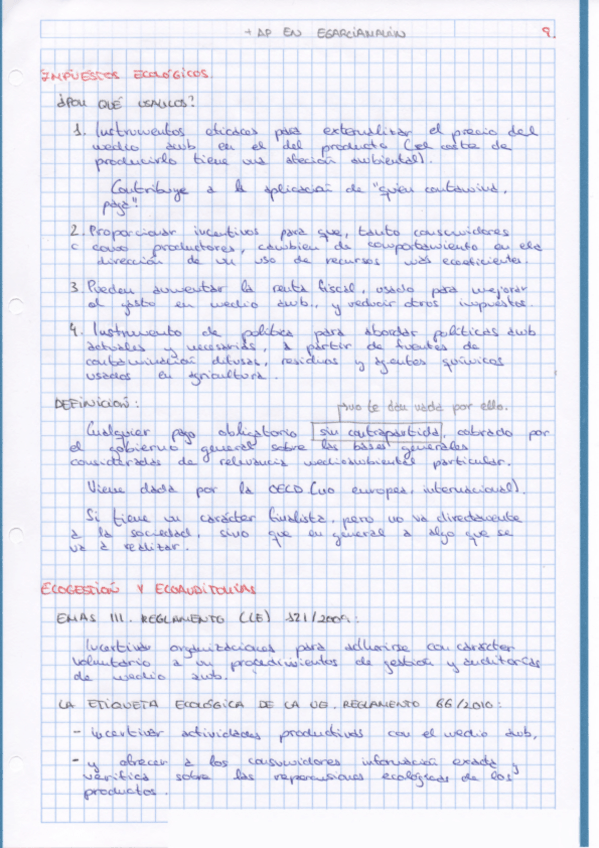 + AP EN EGARCIAMAUN
9.
IMPUESTOS ECOLÓGICOS.
¿POR QUÉ USARLOS?
1. Instrumentos eficaces para externalizar el precio del
medio amb en el del producto (el coste de
producirlo tiene una afección ambiental).
Contribuye a la aplicación de "quien contamina,
paga".
2. Proporcionar incentivos para que, tanto consumidores
como productores, cambien de comportamiento en
dirección de un uso de recursos más ecoeficientes.
3 Pueden aumentar la renta fiscal, usado para mejorar
el gasto en medio amb., y reducir otros impuestos.
4. Instrumento de política para abordar políticas amb
actuales y necesarias, a partir de fuentes de
contaminación difusas, residuos y agentes químicos
usados en agricultura.
DEFINICIÓN:
no te dan nada por ello.
Cualquier pago obligatorio sin contrapartida, cobrado por
el gobierno general sobre las bases generales
consideradas de relevancia medioambiental particular.
Viene dada por la OECD (no europea, internacional).
Si tiene un carácter finalista, pero no va directamente
a la sociedad, sino que en general a algo que se
va a realizar.
ECOGESTIÓN Y ECOAUDITORÍAS
EMAS III. REGLAMENTO (CE) 121/2009:
Incentivar organizaciones para adherirse con carácter
voluntario a un procedimientos de gestión y auditorías
de medio amb.
LA ETIQUETA ECOLÓGICA DE LA UE. REGLAMENTO 66/2010:
- incentivar actividades productivas con el medio amb,
- y ofrecer a los consumidores información exacta y
verífica sobre las repercusiones ecológicas de los
productos.